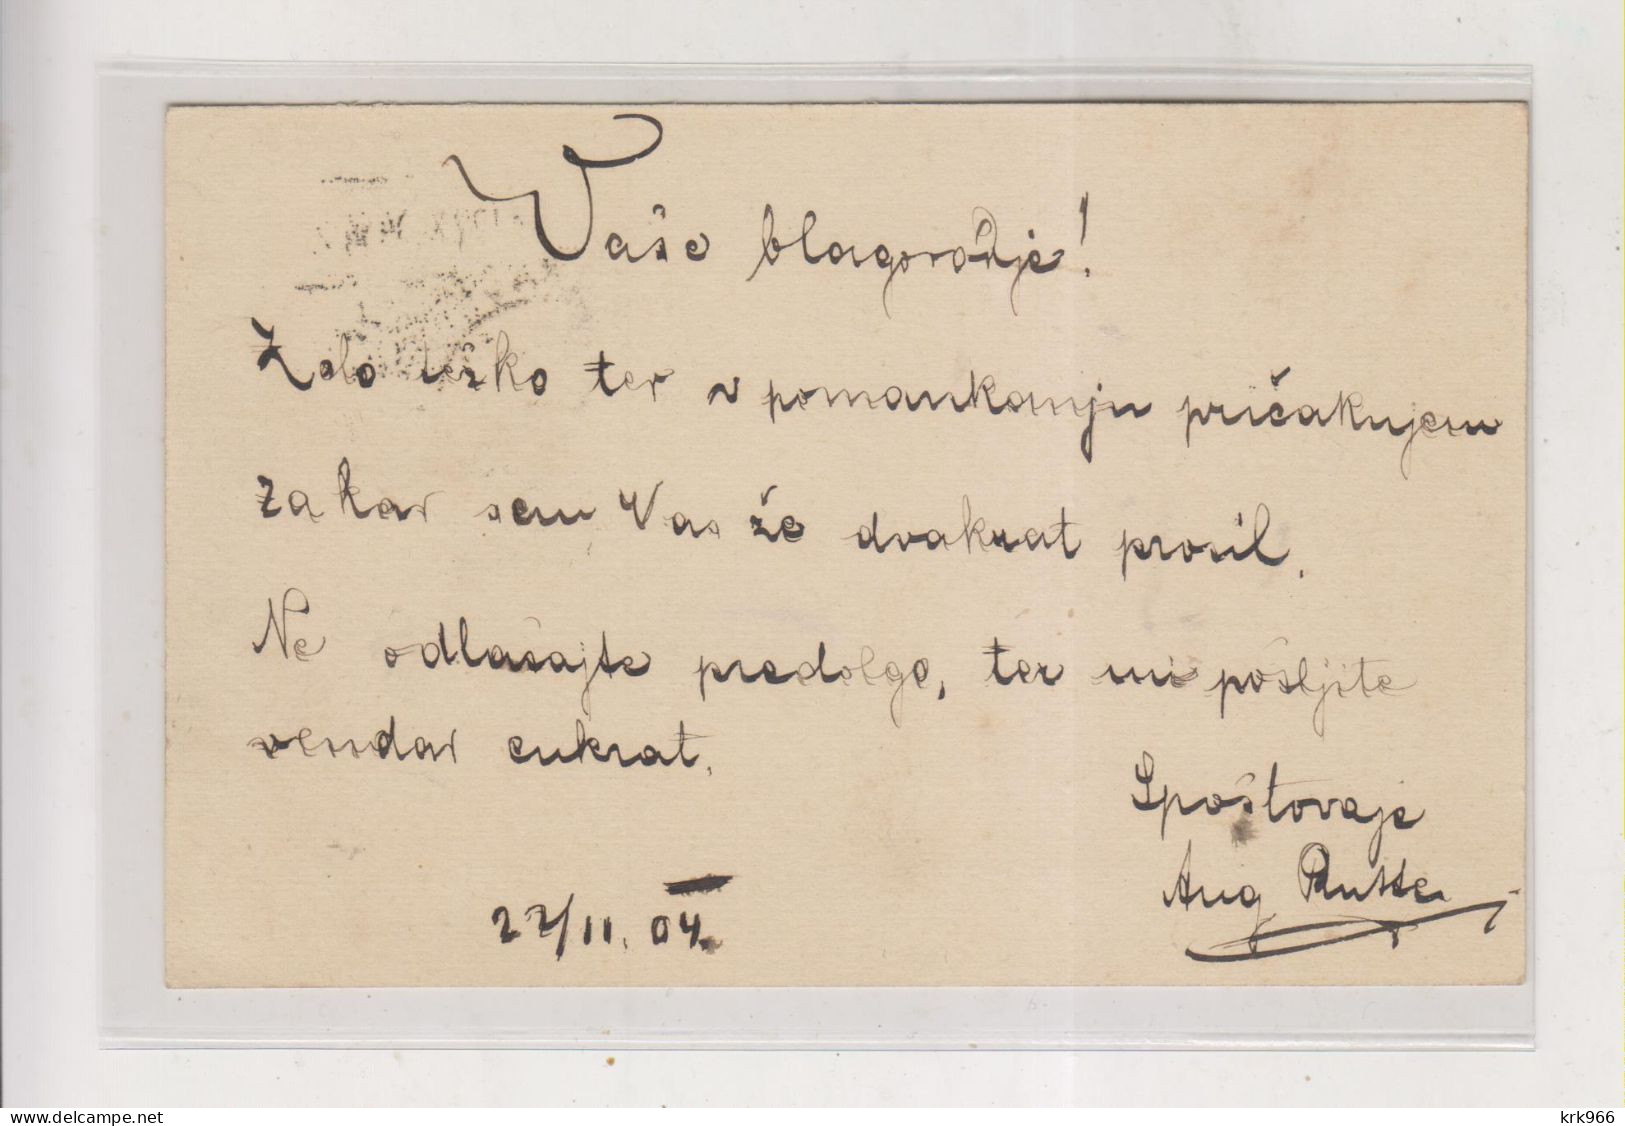 Vaše blagorodje!
Zelo težko ter v pomankanju pričakujem
za kar sem Vas že dvakrat prosil.
Ne odlašajte predolgo, ter mi pošljite
vendar enkrat.
Spoštovaje
Aug
22/11. 04.
delcampe.net
krk966